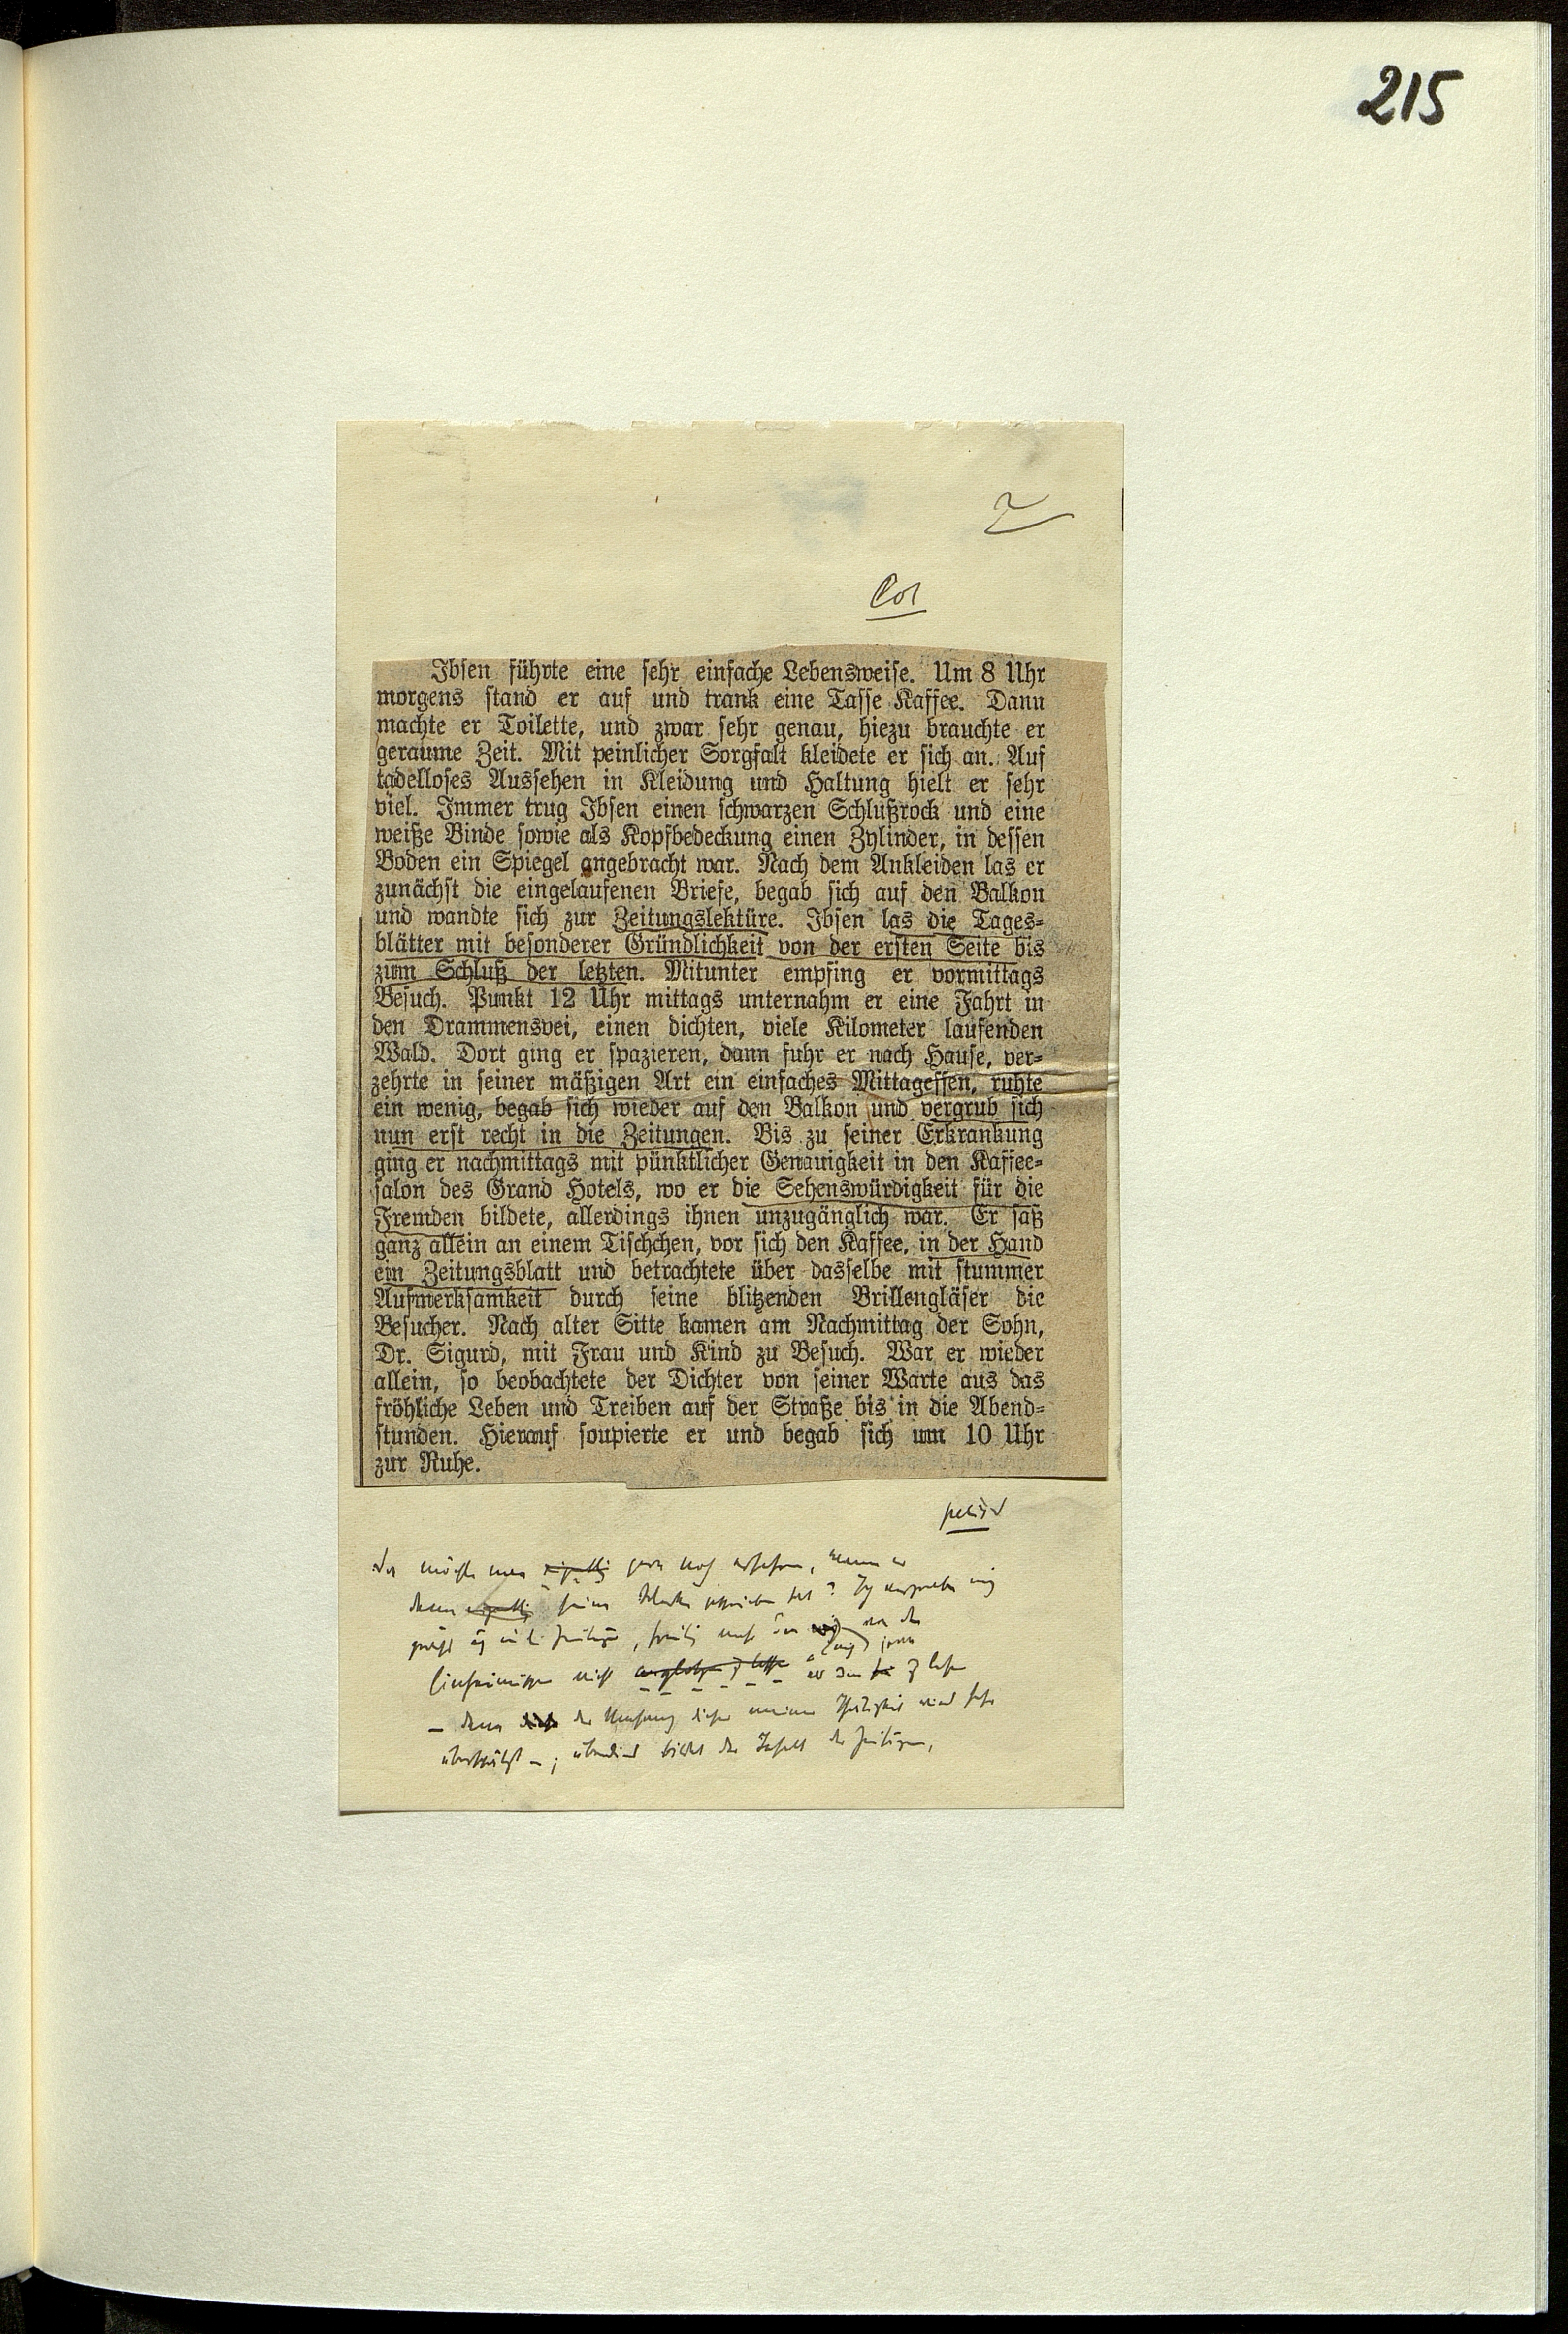 215
2
Cor
Ibsen führte eine sehr einfache Lebensweise. Um 8 Uhr
morgens stand er auf und trank eine Tasse Kaffee. Dann
machte er Toilette, und zwar sehr genau, hiezu brauchte er
geraume Zeit. Mit peinlicher Sorgfalt kleidete er sich an. Auf
tadelloses Aussehen in Kleidung und Haltung hielt er sehr
viel. Immer trug Ibsen einen schwarzen Schlußrock und eine
weiße Binde sowie als Kopfbedeckung einen Zylinder, in dessen
Boden ein Spiegel angebracht war. Nach dem Ankleiden las er
zunächst die eingelaufenen Briefe, begab sich auf den Balkon
und wandte sich zur Zeitungslektüre. Ibsen las die Tages-
blätter mit besonderer Gründlichkeit von der ersten Seite bis
zum Schluß der letzten. Mitunter empfing er vormittags
Besuch. Punkt 12 Uhr mittags unternahm er eine Fahrt in
den Drammensvei, einen dichten, viele Kilometer laufenden
Wald. Dort ging er spazieren, dann fuhr er nach Hause, ver-
zehrte in seiner mäßigen Art ein einfaches Mittagessen, ruhte
ein wenig, begab sich wieder auf den Balkon und vergrub sich
nun erst recht in die Zeitungen. Bis zu seiner Erkrankung
ging er nachmittags mit pünktlicher Genauigkeit in den Kaffee-
salon des Grand Hotels, wo er die Sehenswürdigkeit für die
Fremden bildete, allerdings ihnen unzugänglich war. Er saß
ganz allein an einem Tischchen, vor sich den Kaffee, in der Hand
ein Zeitungsblatt und betrachtete über dasselbe mit stummer
Aufmerksamkeit durch seine blitzenden Brillengläser die
Besucher. Nach alter Sitte kamen am Nachmittag der Sohn,
Dr. Sigurd, mit Frau und Kind zu Besuch. War er wieder
allein, so beobachtete der Dichter von seiner Warte aus das
fröhliche Leben und Treiben auf der Straße bis in die Abend-
stunden. Hierauf soupierte er und begab sich um 10 Uhr
zur Ruhe.
möchte man gern noch erfahren, wann er
denn seine Werke geschrieben hat? Ich
in die Zeitungen,
nicht
– denn der Umfang dieser meiner Thätigkeit wird sehr
überschätzt –; überdies bildet der Inhalt der Zeitungen,